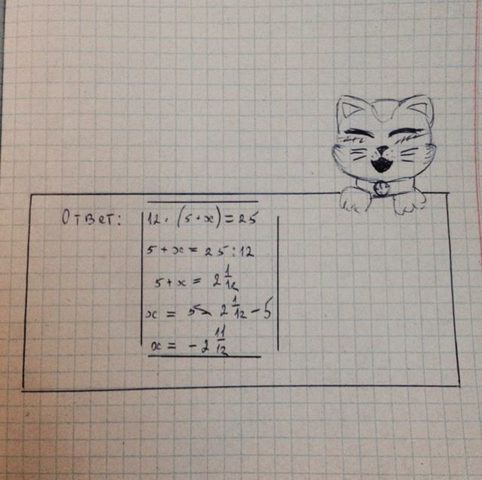 Ответ: 12 · (5+x) = 25
5 + x = 25 : 12
5+x = 2 1/12
x = 2 1/12 - 5
x = - 2 11/12